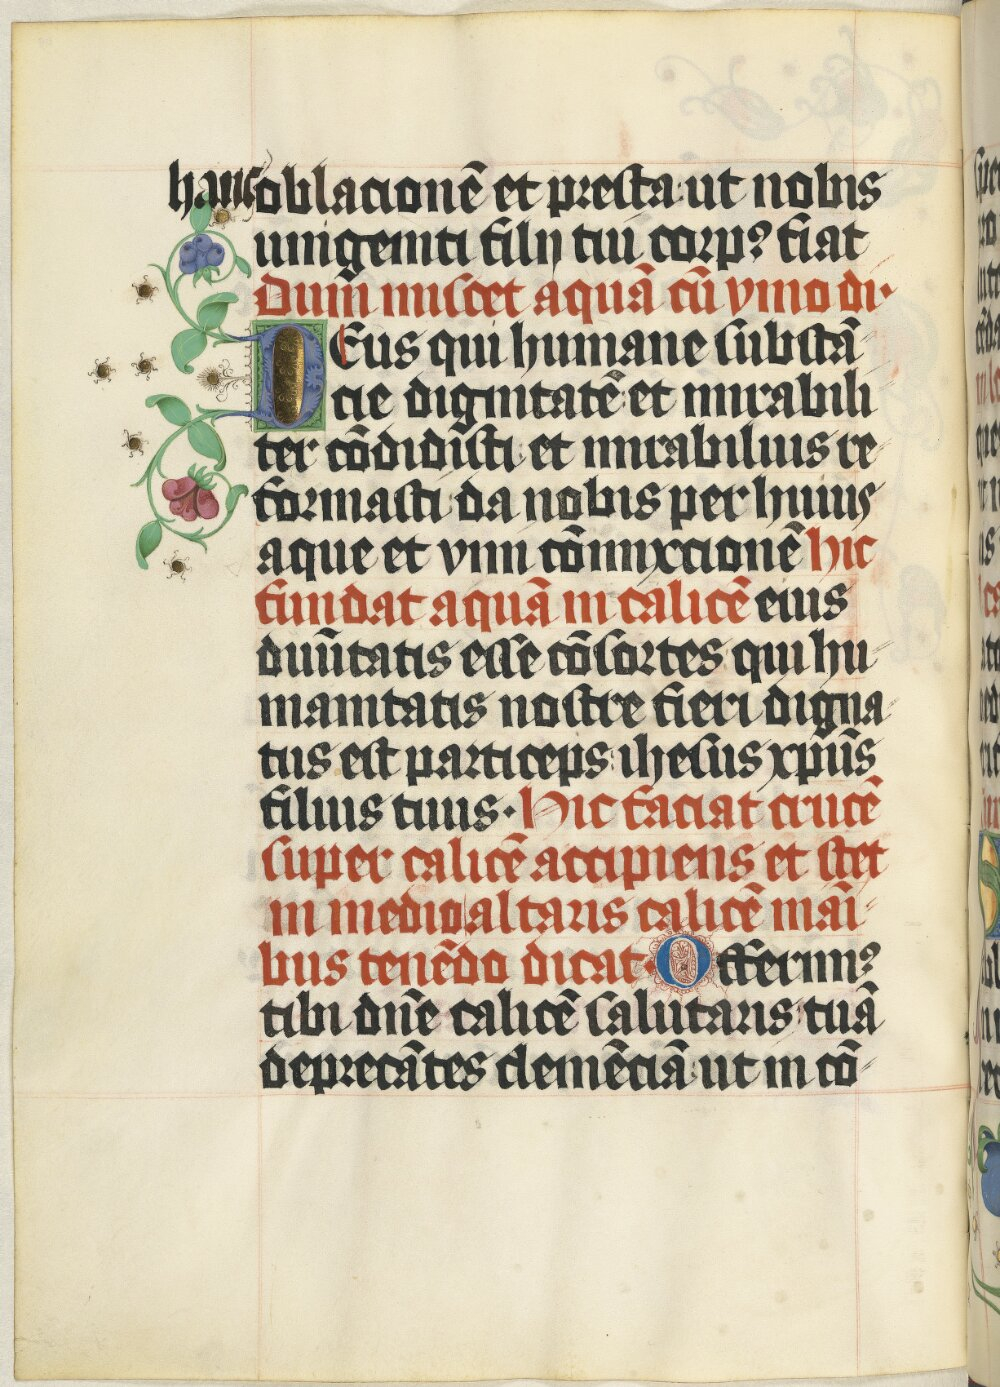 hanc oblacionē et presta ut nobis
unigeniti filij tui corpꝰ fiat
Dum miscet aquā cū vino di-
Deus qui humane substā-
cie dignitatē et mirabili-
ter cōdidisti et mirabilius re-
formasti da nobis per huius
aque et vini cōmixcionē hic
fundat aquā in calicē eius
diuīitatis esse cōsortes qui hu-
manitatis nostre fieri digna-
tus est particeps ihesus xp̄us
filius tuus. Hic faciat crucē
super calicē accipiens et stet
in medio altaris calicē mani-
bus tenēdo dicat Offerimꝰ
tibi dn̄e calicē salutaris tuā
deprecātes clemēciā ut in cō-